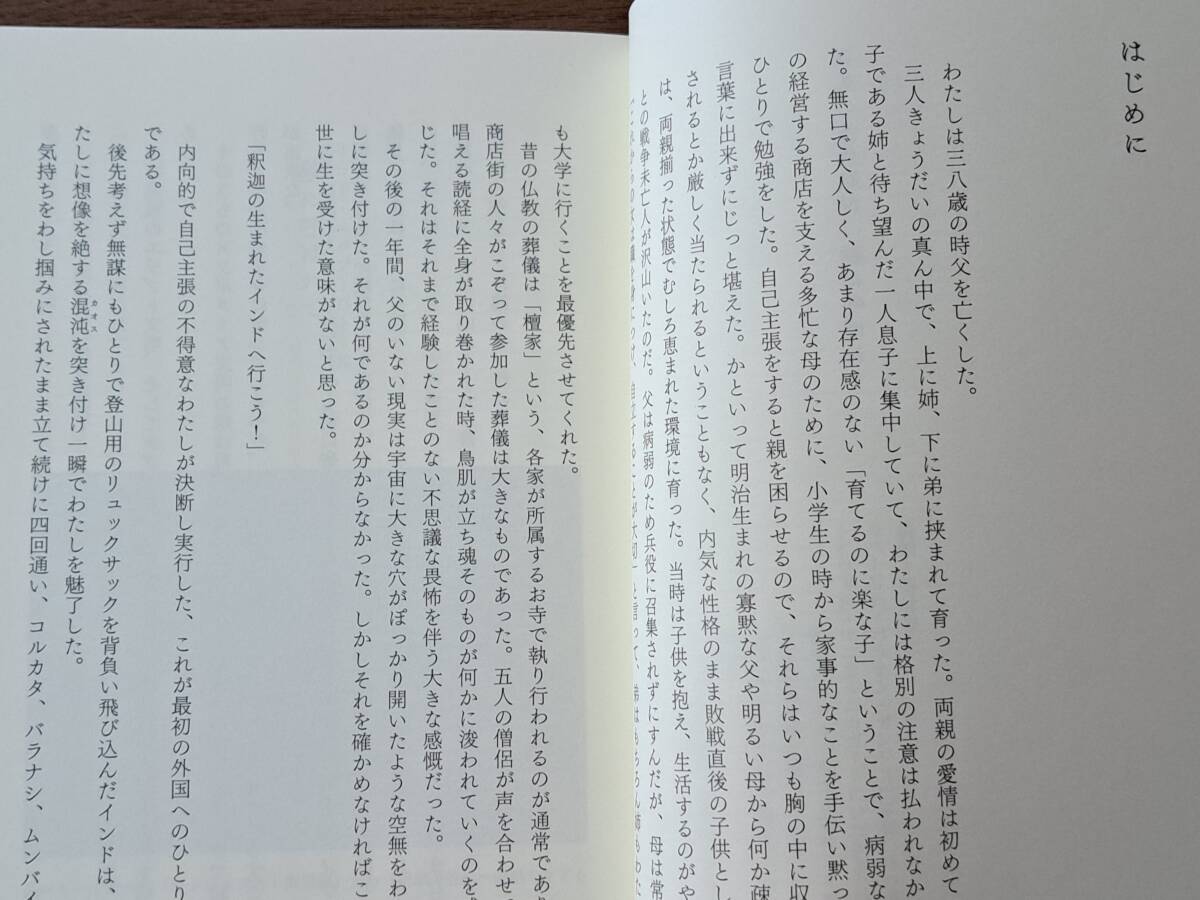 はじめに
わたしは三八歳の時父を亡くした。
三人きょうだいの真ん中で、上に姉、下に弟に挟まれて育った。両親の愛情は初めて
子である姉と待ち望んだ一人息子に集中していて、わたしには格別の注意は払われなか
た。無口で大人しく、あまり存在感のない「育てるのに楽な子」ということで、病弱な
の経営する商店を支える多忙な母のために、小学生の時から家事的なことを手伝い黙っ
ひとりで勉強をした。自己主張をすると親を困らせるので、それらはいつも胸の中に収
言葉に出来ずにじっと堪えた。かといって明治生まれの寡黙な父や明るい母から何か疎
されるとか厳しく当たられるということもなく、内気な性格のまま敗戦直後の子供とし
は、両親揃った状態でむしろ恵まれた環境に育った。当時は子供を抱え、生活するのがや
との戦争未亡人が沢山いたのだ。父は病弱のため兵役に召集されずにすんだが、母は常
自立することが大切」と言って、弟はもちろん姉もわた
も大学に行くことを最優先させてくれた。
昔の仏教の葬儀は「檀家」という、各家が所属するお寺で執り行われるのが通常であ
商店街の人々がこぞって参加した葬儀は大きなものであった。五人の僧侶が声を合わせ
唱える読経に全身が取り巻かれた時、鳥肌が立ち魂そのものが何かに浚われていくのを
じた。それはそれまで経験したことのない不思議な畏怖を伴う大きな感慨だった。
その後の一年間、父のいない現実は宇宙に大きな穴がぽっかり開いたような空無をわ
しに突き付けた。それが何であるのか分からなかった。しかしそれを確かめなければこ
世に生を受けた意味がないと思った。
「釈迦の生まれたインドへ行こう！」
内向的で自己主張の不得意なわたしが決断し実行した、これが最初の外国へのひとり
である。
後先考えず無謀にもひとりで登山用のリュックサックを背負い飛び込んだインドは、
たしに想像を絶する混沌カオスを突き付け一瞬でわたしを魅了した。
気持ちをわし掴みにされたまま立て続けに四回通い、コルカタ、バラナシ、ムンバイ